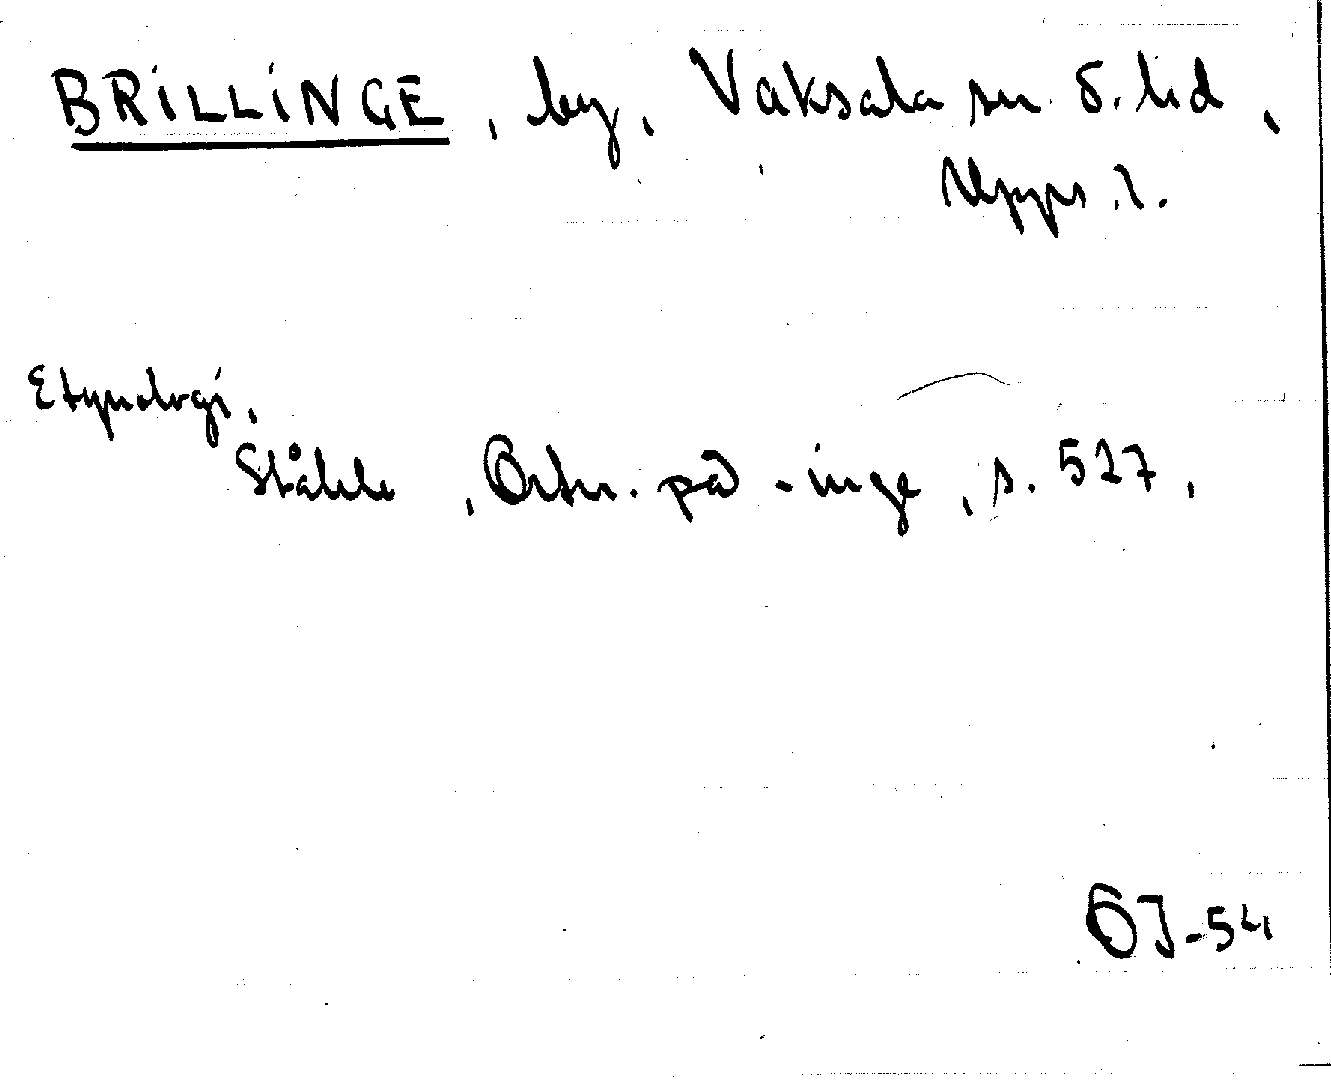 BRILLINGE, by, Vaksala sn. o. hd,
Upps. l.
Etymologi,
Ståhle, Ortn. på -inge, s. 527,
ÖJ-54